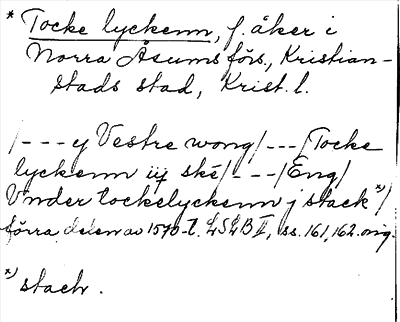 * Tocke lyckenn, f. åker i
Norra Åsums förs., Kristian-
stads stad, Krist. l.
/---y Vestre wong/---/Tocke
lyckenn iij skē/---/Eng/
Vnder tockelyckenn j stack*)/
förra delen av 1570-t. LSLB II, ss. 161, 162. orig.
*) stack.